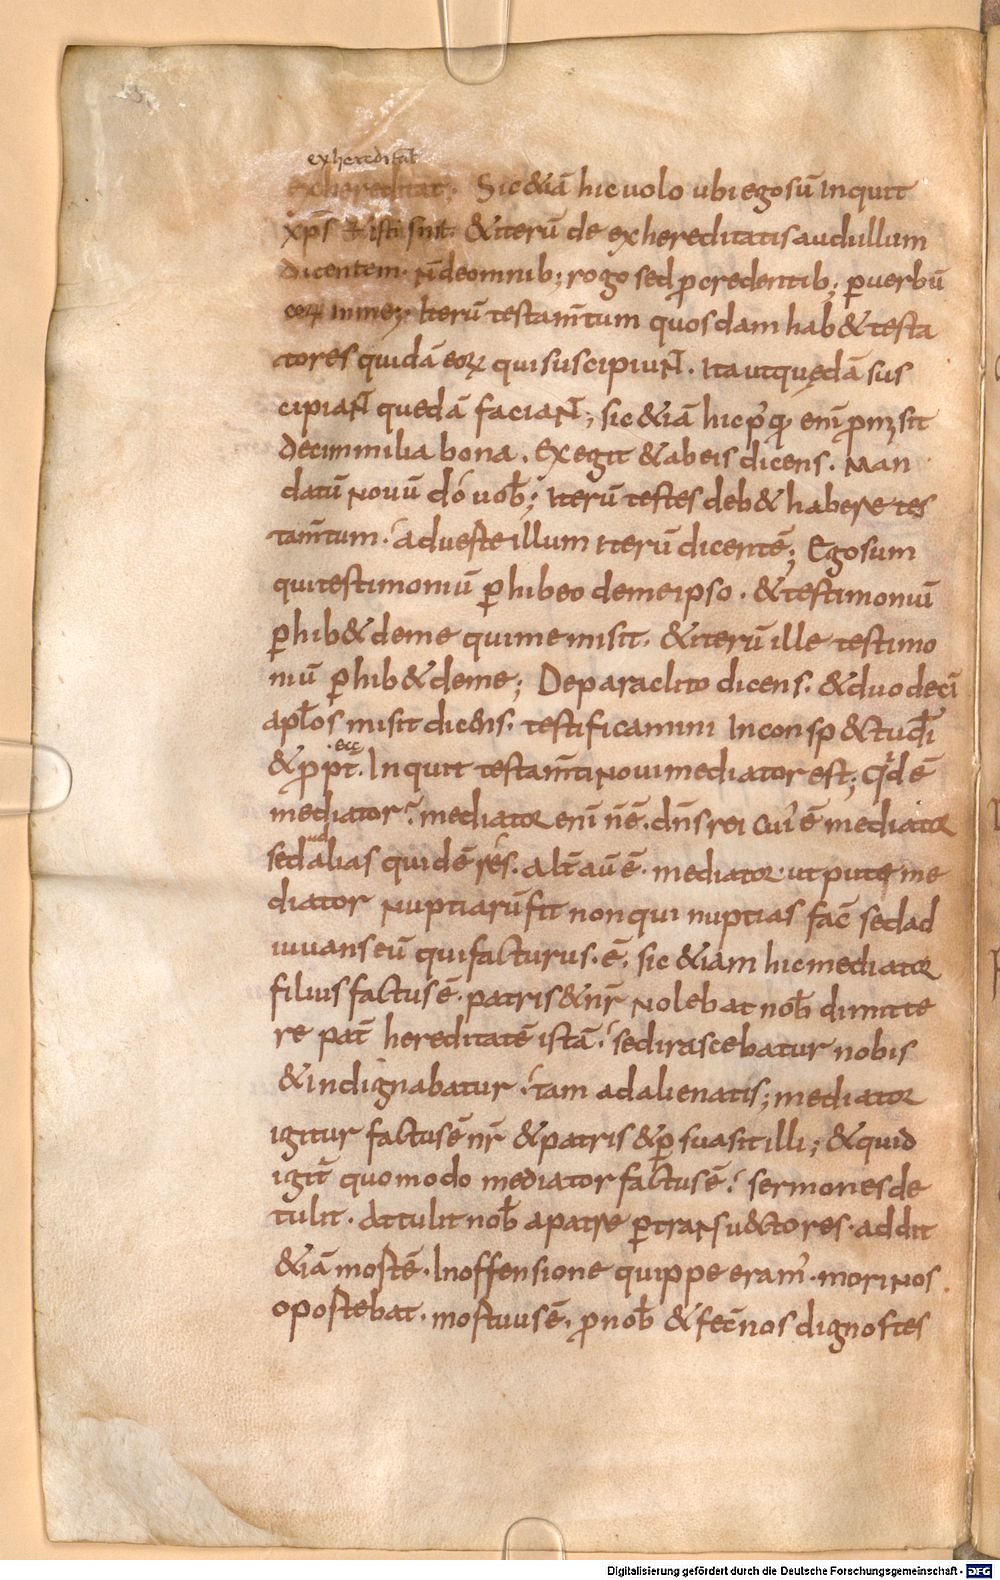 exhereditat
exhereditat; Sic &iā hic uolo ubi ego sū inquit
xp̄s & isti sint. &iterū de exhereditatis audi illum
dicentem. n̄ de omnib; rogo sed p credentib; ꝑ uerbū
eoꝝ in me; Iterū testam̄tum quosdam hab& testa
tores quidā eoꝝ qui suscipiuɴt. Ita ut quędā sus
cipiaɴt quedā faciaɴt; sic &iā hic
Decim milia bona. Exegit & ab eis dicens. Man
datū nouū do uob̄; Iterū testes deb& habere tes
tam̄tum. Aduerte illum iterū dicentē; Ego sum
qui testimoniū ꝑhibeo de me ipso. & testimoniū
ꝑhib& de me qui me misit. & iterū ille testimo
niū ꝑhib& de me; De paraclito dicens. & duodeci
apl̄os misit dicens. testificamini
ecc
& Inquit testam̄ti noui mediator est; Qd ē
mediator? mediator eni n̄ ē. dn̄s rei cui ē mediator
ud
sed alias quidē res. alt̄ aū ē. mediator. ut pute me
diator nuptiarū fit non qui nuptias fac̄ sed ad
iuuans eū qui facturus. ē. sic &iam hic mediator
filius factus ē. patris & nr̄ Nolebat nob̄ dimitte
re pat̄ hereditatē istā. sed irascebatur nobis
& indignabatur. tam ad alienatis; mediator
igitur factus ē nr̄ & patris & ꝑsuasit illi; & quid
igit̄ quomodo mediator factus ē? sermones de
tulit. Attulit nob̄ a patre ꝑ traɴsu&ctores. addit
&iā mortē. In offensione quippe eram̄. mori nos
oportebat. mortuus ē. pro nob̄ & fec̄ nos dignos tes
Digitalisierung gefördert durch die Deutsche Forschungsgemeinschaft - DFG